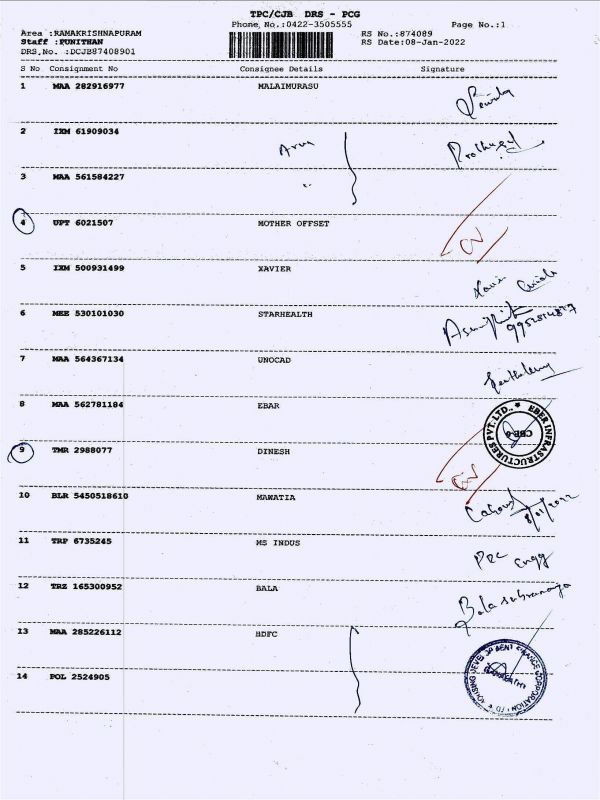 TPC/CJB DRS - PCG
Phone No.:0422-3505555 Page No.:1
Area :RAMAKRISHNAPURAM RS No.:874089
Staff :PUNITHAN RS Date:08-Jan-2022
DRS.No. :DCJB87408901
S No Consignment No Consignee Details Signature
1 MAA 282916977 MALAIMURASU
2 IXM 61909034 Arun
3 MAA 561584227 "
4 UPT 6021507 MOTHER OFFSET
5 IXM 500931499 XAVIER
6 MEE 530101030 STARHEALTH
7 MAA 564367134 UNOCAD
8 MAA 562781184 EBAR
EBER INFRASTRUCTURES PVT. LTD.,
9 TMR 2988077 DINESH
10 BLR 5450518610 MAWATIA 8/01/2022
11 TRP 6735245 MS INDUS
12 TRZ 165300952 BALA Balasubramaniya
13 MAA 285226112 HDFC
14 POL 2524905